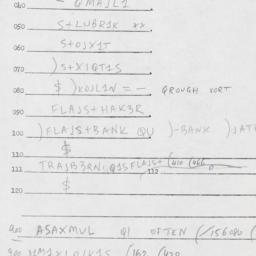 040 QMAJL1
050 S+LUBR1K **
060 S+OJX1T
070 )S+XIQT1S
080 $ )KOJL1N = — QROUGH XORT
090 FLAJS+HAK3R
100 )FLAJS+BANK QU )-BANK )JAT
$
110
TRAJB3RN; Q1S FLAJS+ (410 (466
111 112
$
120
900 ASAXMUL Q1 OFTEN (/156086 (
900 (162 (420